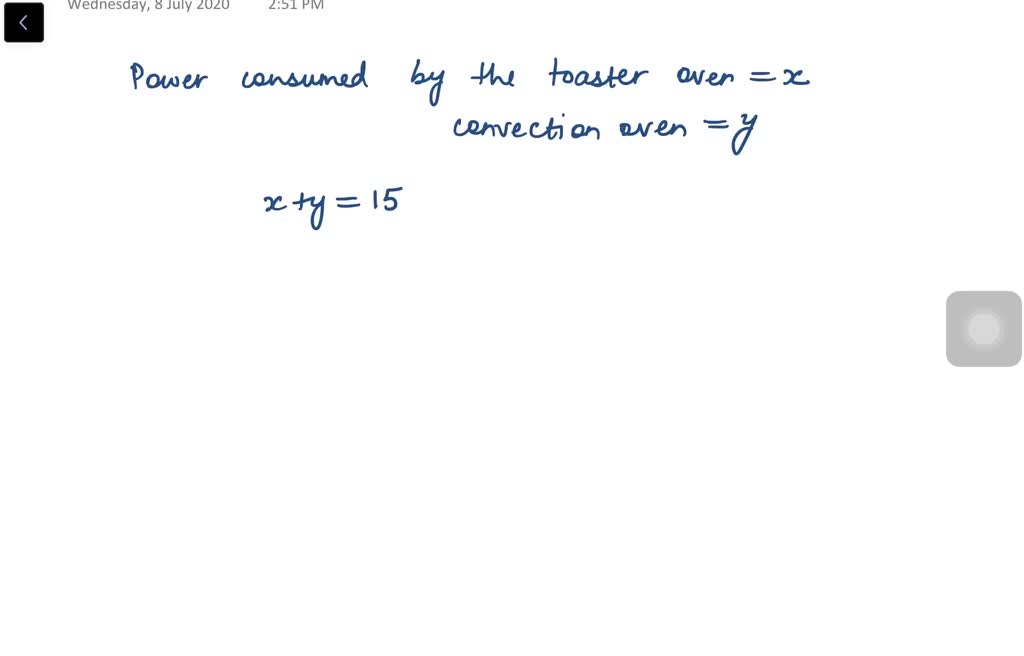 Wednesday, 8 July 2020 2:51 PM
Power consumed by the toaster oven = x
convection oven = y
x + y = 15